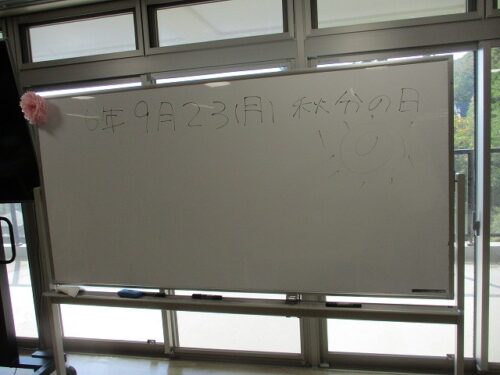 6年9月23(月) 秋分の日